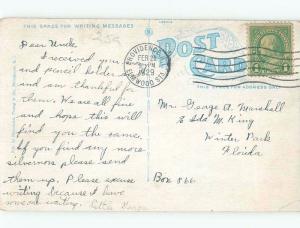 THIS SPACE FOR WRITING MESSAGES
POST
CARD
PROVIDENCE, R.I.
FEB 28
PM
1929
ELMWOOD STA.
THIS SPACE FOR ADDRESS ONLY
Dear Uncle.
I received your
and pencil holder
and am thankful for
them. We are all fine
and hope this will
find you the same.
If you find any more
silverons please send
them up. Please excuse
writing because I have
someone waiting.
Mr. George A. Marshall
E sda M. King
Winter Park
Florida
Box 866